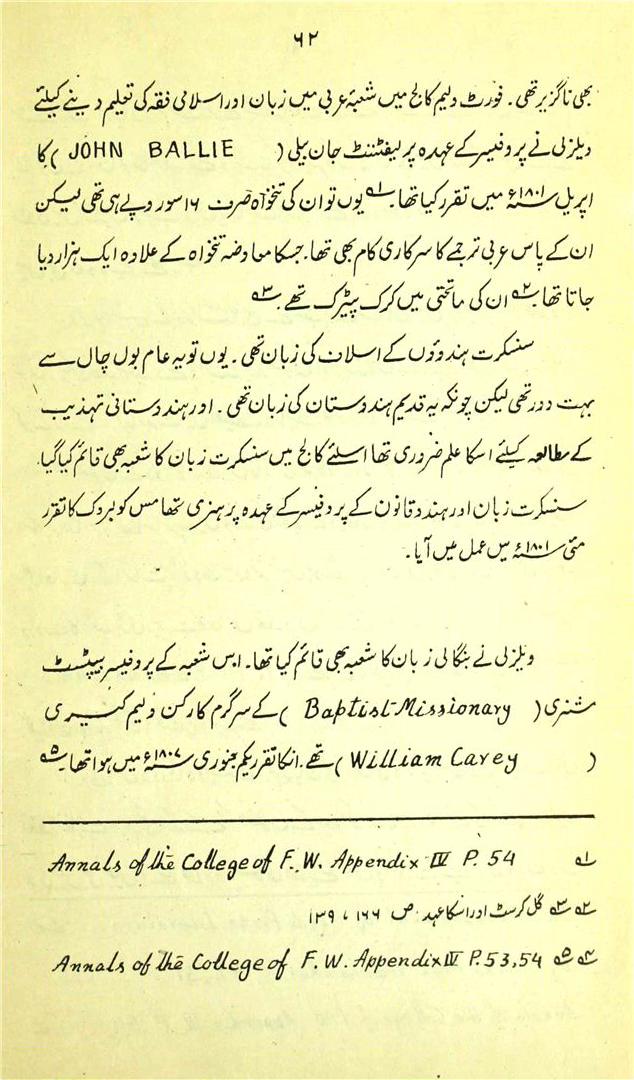 ۶۲
بھی ناگزیر تھی ۔ فورٹ ولیم کالج میں شعبۂ عربی میں زبان اور اسلامی فقہ کی تعلیم دینے کیلئے
ویلزلی نے پروفیسر کے عہدہ پر لیفٹننٹ جان بیلی ( JOHN BALLIE ) کا
اپریل ۱۸۰۱ء میں تقرر کیا تھا ۔۱؎ یوں تو ان کی تنخواہ صرف ۱۶ سو روپے ہی تھی لیکن
ان کے پاس عربی ترجمے کا سرکاری کام بھی تھا ۔ جسکا معاوضہ تنخواہ کے علاوہ ایک ہزار دیا
جاتا تھا ۔۲؎ ان کی ماتحتی میں کرک پیٹرک تھے ۔۳؎
سنسکرت ہندوؤں کے اسلاف کی زبان تھی ۔ یوں تو یہ عام بول چال سے
بہت دور تھی لیکن چونکہ یہ قدیم ہندوستان کی زبان تھی ۔ اور ہندوستانی تہذیب
کے مطالعہ کیلئے اسکا علم ضروری تھا اسلئے کالج میں سنسکرت زبان کا شعبہ بھی قائم کیا گیا
سنسکرت زبان اور ہندو قانون کے پروفیسر کے عہدہ پر ہنری تھامس کولبروک کا تقرر
مئی ۱۸۰۱ء میں عمل میں آیا ۔
ویلزلی نے بنگالی زبان کا شعبہ بھی قائم کیا تھا ۔ اس شعبہ کے پروفیسر بیپٹسٹ
مشنری ( Baptist-Missionary ) کے سرگرم کارکن ولیم کیری
( William Carey ) تھے ۔ انکا تقرر یکم جنوری ۱۸۰۷ء میں ہوا تھا ۔۵؎
۱؎ Annals of the College of F.W. Appendix IV P. 54
۲؎ ۳؎ گل کرسٹ اور اسکا عہد ص ۱۶۶ ، ۱۳۹
۴؎ ۵؎ Annals of the College of F.W. Appendix IV P. 53,54